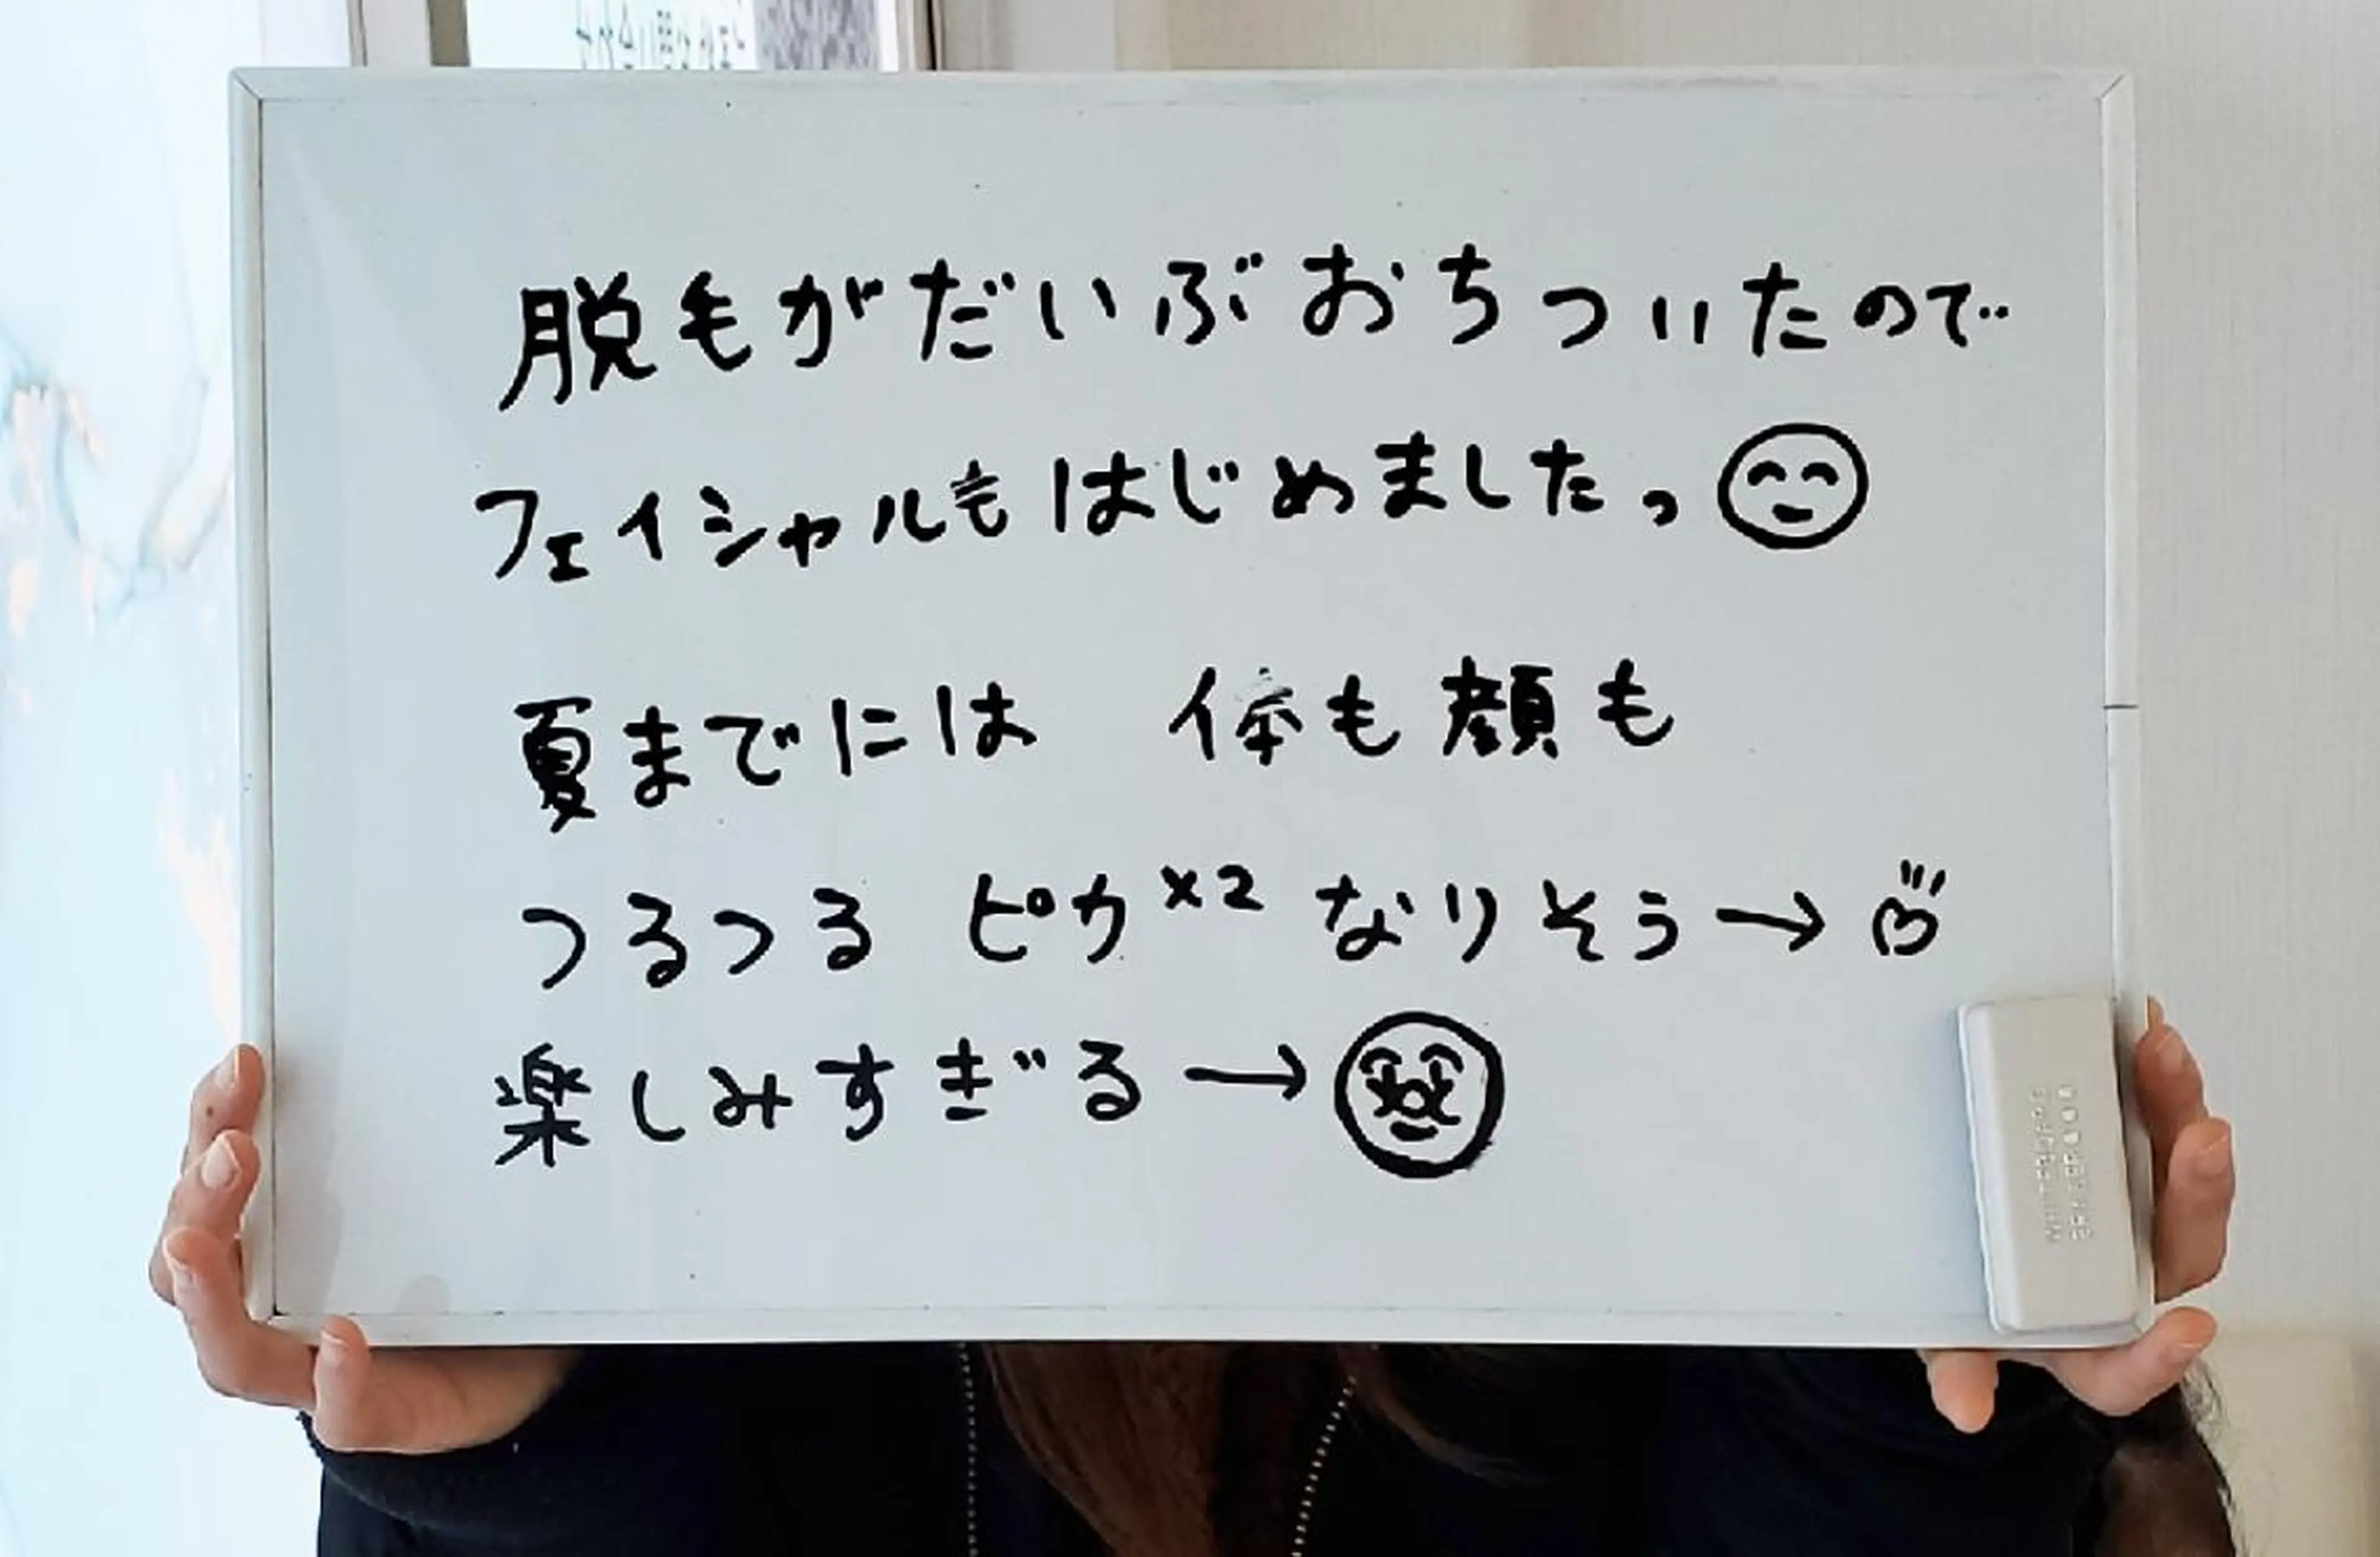 脱毛がだいぶおちついたので
フェイシャルもはじめましたっ
夏までには 体も顔も
つるつる ピカ×2 なりそう→
楽しみすぎる→
WHITEBOARD
ERASER